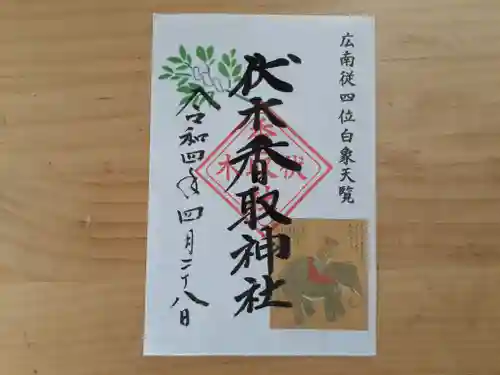 広南従四位白象天覧
伏木香取神社
令和四年四月二十八日